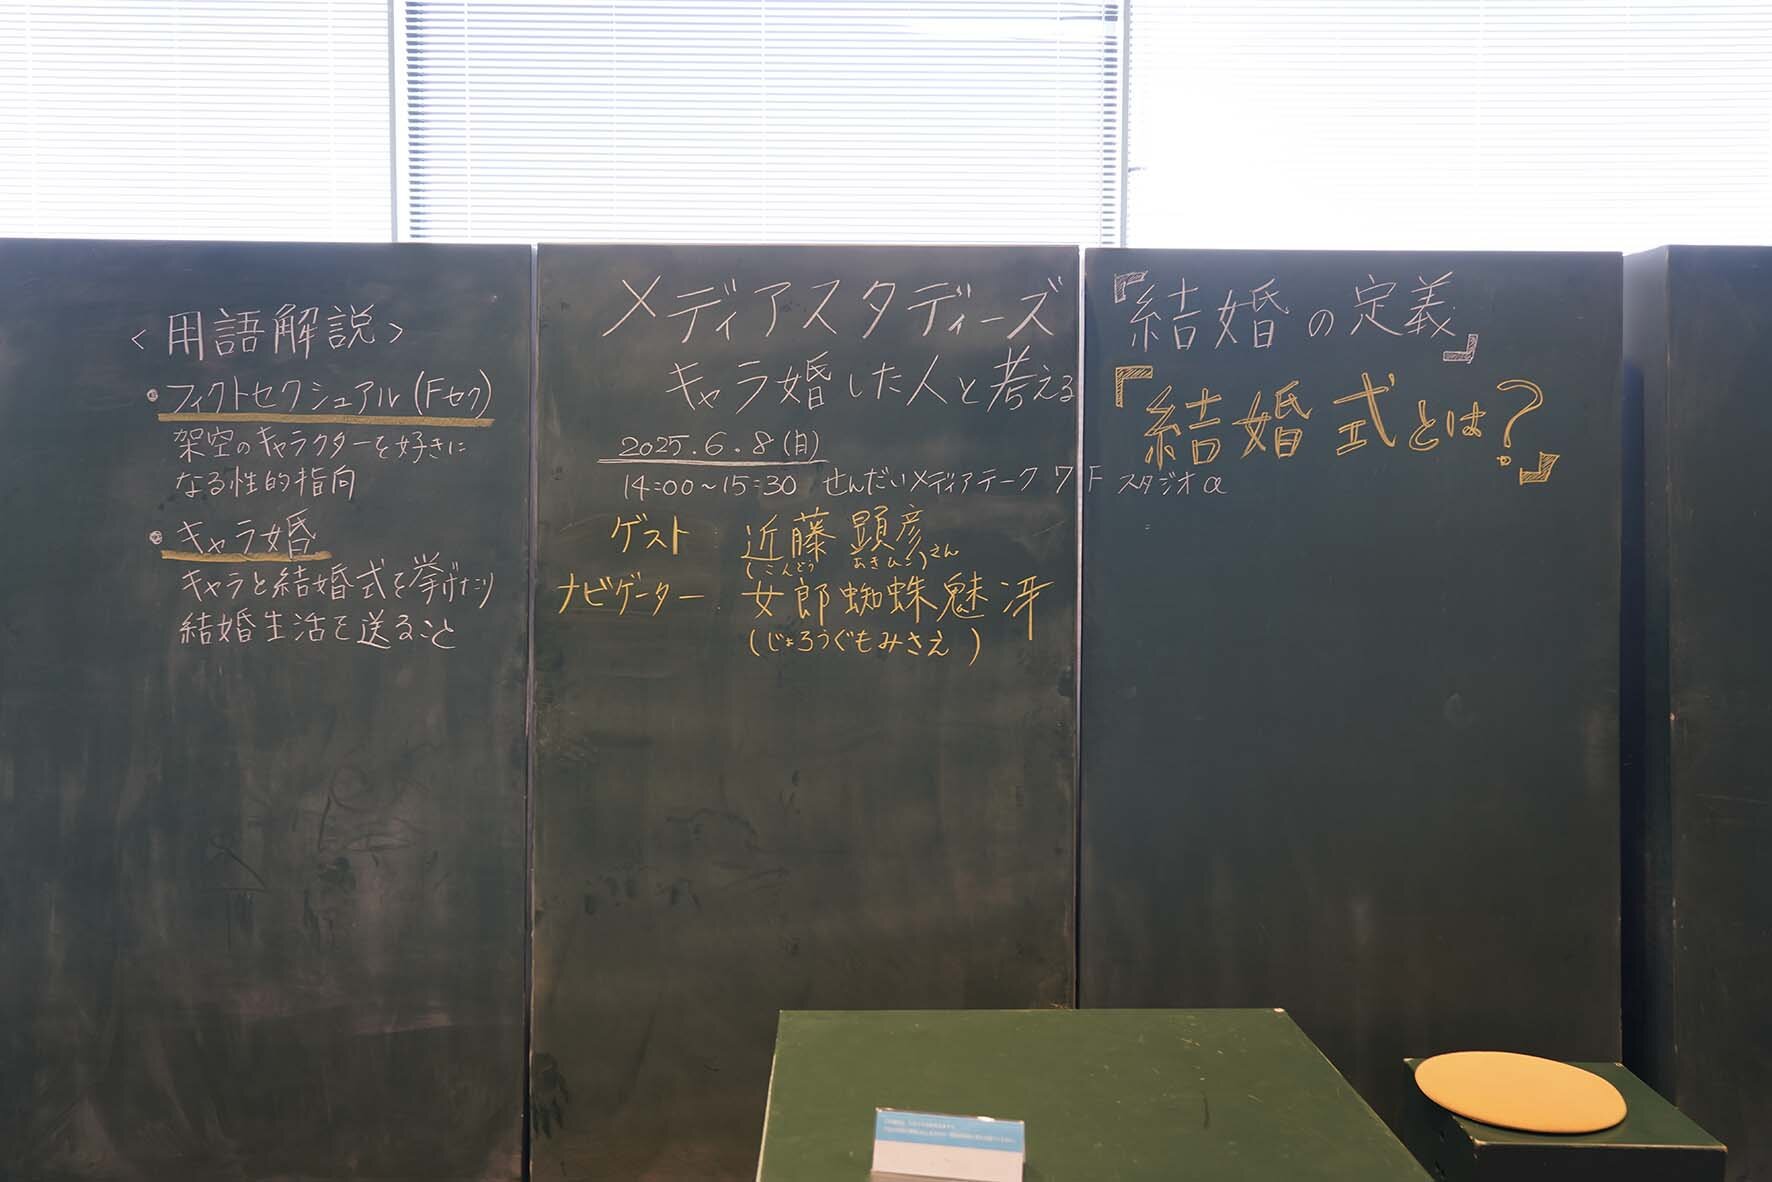 <用語解説>
・フィクトセクシュアル(Fセク)
架空のキャラクターを好きに
なる性的指向
・キャラ婚
キャラと結婚式を挙げたり
結婚生活を送ること
メディアスタディーズ
キャラ婚した人と考える
2025.6.8(日)
14:00~15:30 せんだいメディアテーク 7F スタジオα
ゲスト 近藤 顕彦さん
(こんどう あきひこ)
ナビゲーター 女郎蜘蛛魅冴
(じょろうぐもみさえ)
『結婚の定義』
『結婚式とは?』